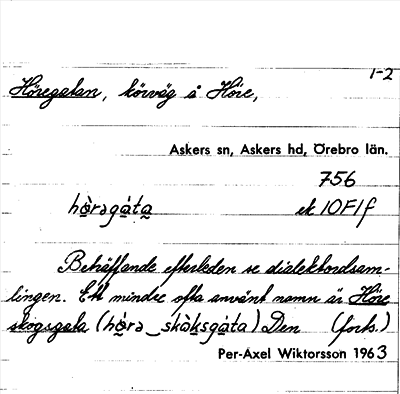 1-2
Höregatan, körväg å Höre,
Askers sn, Askers hd, Örebro län.
756
hö̀rəgàta ek 10F1f
Beträffande efterleden se dialektordsam-
lingen. Ett mindre ofta använt namn är Höre
skogsgata (hö̀rə_skòksgàta) Den (forts.)
Per-Axel Wiktorsson 1963